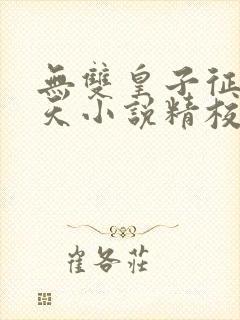 無雙皇子征
天小說精校
崔各莊